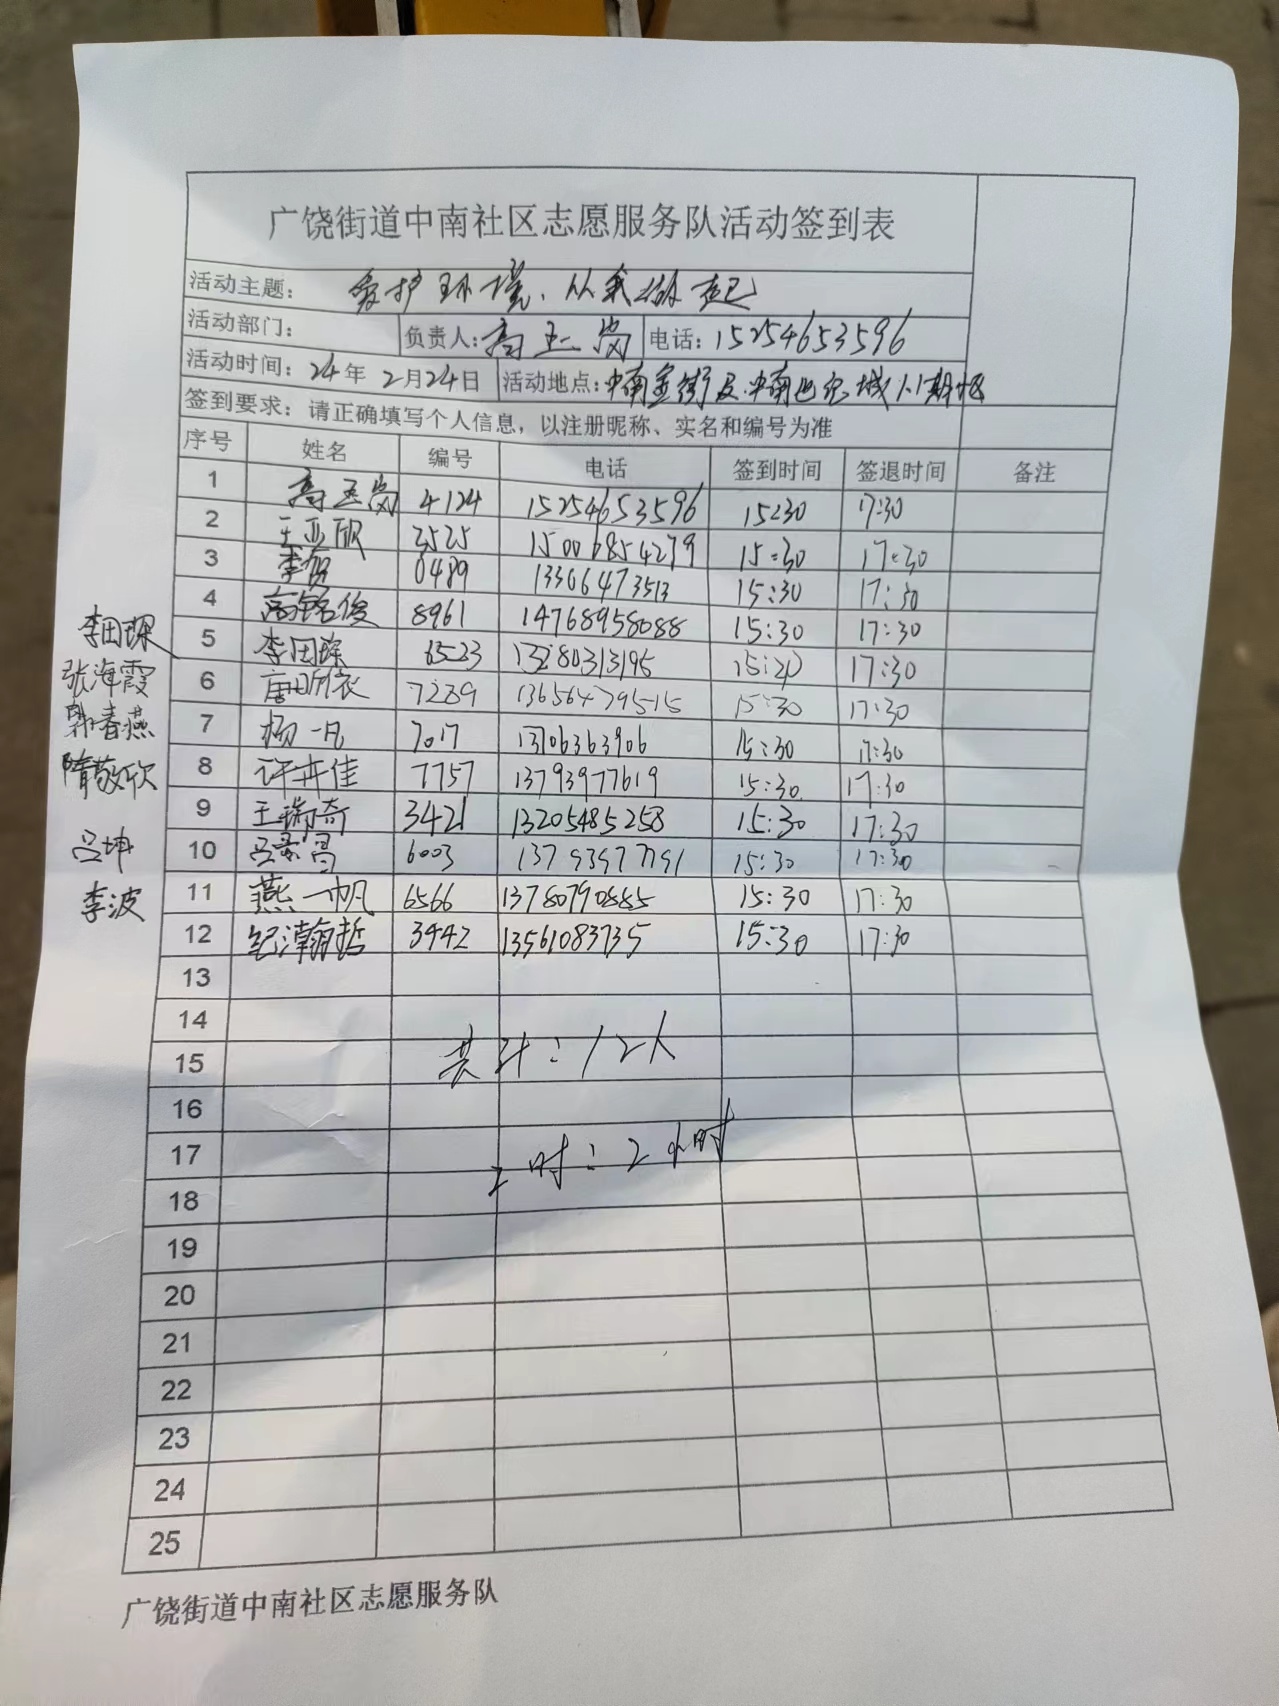 广饶街道中南社区志愿服务队活动签到表
活动主题： 爱护环境、从我做起
活动部门： 负责人：高玉岗 电话：15254653596
活动时间：24年2月24日 活动地点：中南金街及中南世纪城
签到要求：请正确填写个人信息，以注册昵称、实名和编号为准
序号 姓名 编号 电话 签到时间 签退时间 备注
1 高玉岗 4124 15254653596 15:30 17:30
2 王亚欣 2525 15006854279 15:30 17:30
3 0489 13306473513 15:30 17:30
4 高铭俊 8961 14768958088 15:30 17:30
李田琛
5 李田琛 6523 13280313195 17:30
张海霞
6 唐昕依 7289 13656479515 15:30 17:30
郭春燕
7 杨一凡 7017 15:30 17:30
隋敬欣
8 许卉佳 7757 13793977619 15:30 17:30
9 王瑞奇 3421 13205485258 15:30 17:30
吕坤
10 6003 13793977791 15:30 17:30
李波
11 燕一帆 6566 13780790885 15:30 17:30
12 纪瀚哲 3442 13561083735 15:30 17:30
13
14
共计：12人
15
16
17
工时：2小时
18
19
20
21
22
23
24
25
广饶街道中南社区志愿服务队